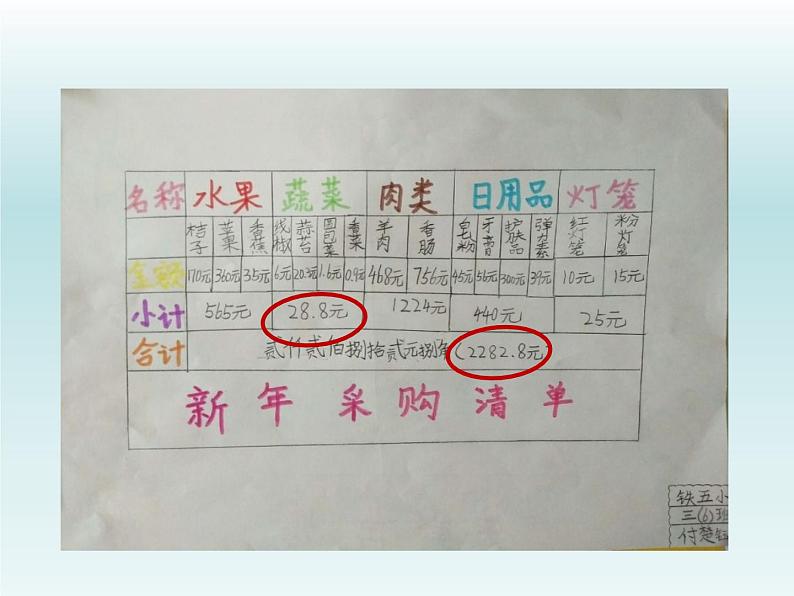 名称 水果 蔬菜 肉类 日用品 灯笼
桔子 苹果 香蕉 线椒 蒜苔 圆包菜 香菜 羊肉 香肠 皂粉 牙膏 护肤品 弹力素 红灯笼 粉灯笼
金额 170元 360元 35元 6元 20.3元 1.6元 0.9元 468元 756元 45元 56元 300元 39元 10元 15元
小计 565元 28.8元 1224元 440元 25元
合计 贰仟贰佰捌拾贰元捌角(2282.8元
新年采购清单
铁五小
三(6)班
付楚